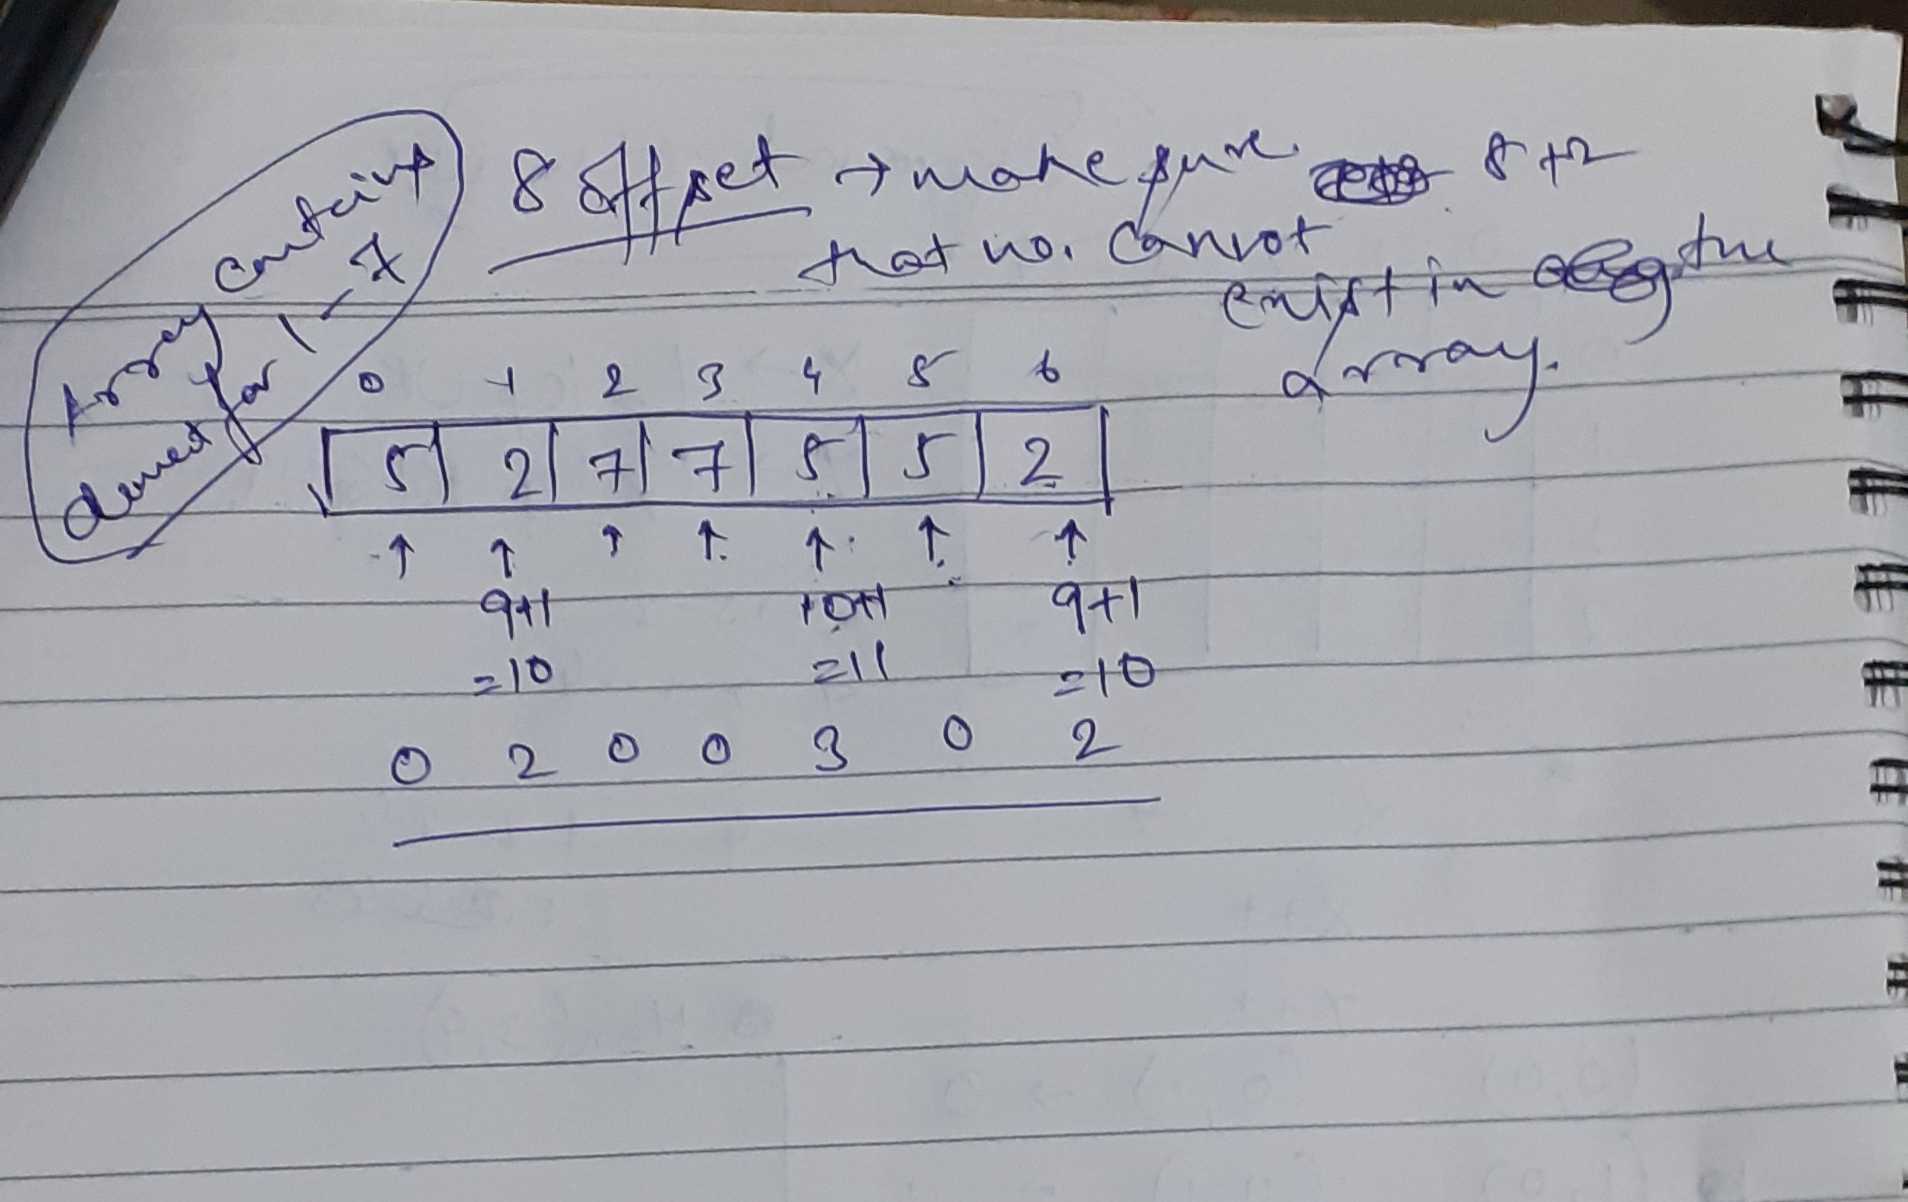 Array contains
element for 1-7
8 Offset → make sure 8+2
that no. cannot
exist in the
array.
0 1 2 3 4 5 6
5 2 7 7 5 5 2
↑ ↑ ↑ ↑ ↑ ↑ ↑
9+1 10+1 9+1
=10 =11 =10
0 2 0 0 3 0 2